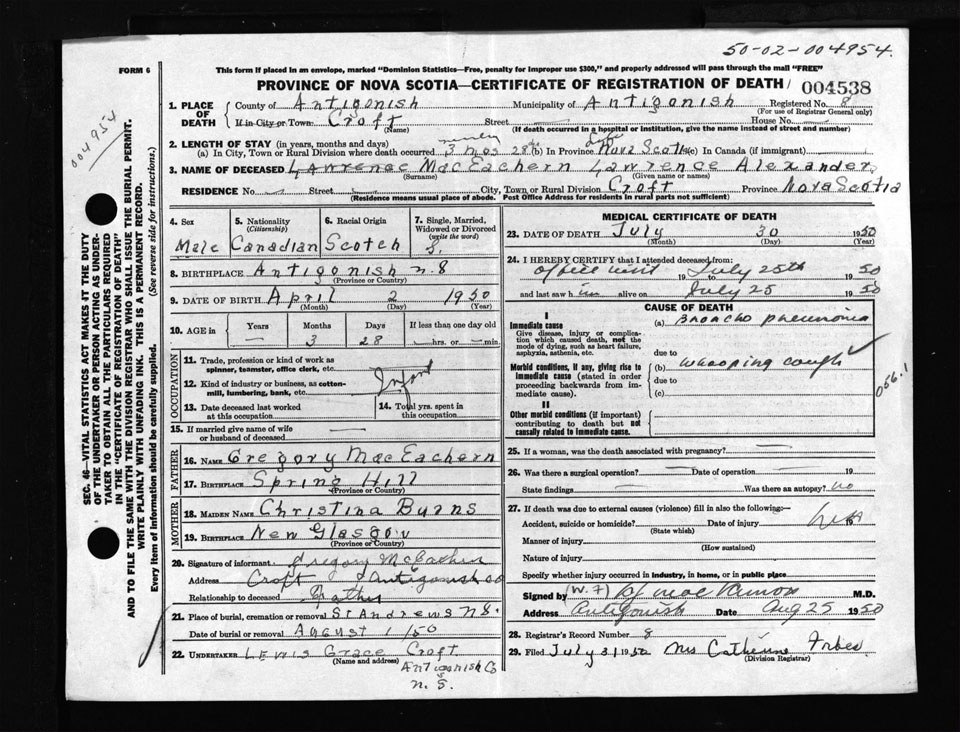 50-02-004954.
FORM 6
This form if placed in an envelope, marked "Dominion Statistics—Free, penalty for improper use $300," and properly addressed will pass through the mail "FREE"
PROVINCE OF NOVA SCOTIA—CERTIFICATE OF REGISTRATION OF DEATH / 004538
004954
SEC. 46—VITAL STATISTICS ACT MAKES IT THE DUTY
OF THE UNDERTAKER OR PERSON ACTING AS UNDER-
TAKER TO OBTAIN ALL THE PARTICULARS REQUIRED
IN THE "CERTIFICATE OF REGISTRATION OF DEATH" AND TO FILE THE SAME WITH THE DIVISION REGISTRAR WHO SHALL ISSUE THE BURIAL PERMIT.
WRITE PLAINLY WITH UNFADING INK. THIS IS A PERMANENT RECORD.
Every item of information should be carefully supplied. (See reverse side for instructions.)
1. PLACE OF DEATH County of Antigonish Municipality of Antigonish Registered No. 8
(For use of Registrar General only)
If in City or Town Croft Street House No.
(Name) (If death occurred in a hospital or institution, give the name instead of street and number)
2. LENGTH OF STAY (in years, months and days)
(a) In City, Town or Rural Division where death occurred 3 mos 28 (b) In Province Life Nova Scotia (c) In Canada (if immigrant)
3. NAME OF DECEASED Lawrence MacEachern Lawrence Alexander
(Surname) (Given name or names)
RESIDENCE No. Street City, Town or Rural Division Croft Province Nova Scotia
(Residence means usual place of abode. Post Office Address for residents in rural parts not sufficient)
4. Sex Male
5. Nationality (Citizenship) Canadian
6. Racial Origin Scotch
7. Single, Married, Widowed or Divorced (write the word) S.
8. BIRTHPLACE Antigonish N.S
(Province or Country)
9. DATE OF BIRTH April 2 1950
(Month) (Day) (Year)
10. AGE in Years Months Days If less than one day old
— 3 28 — hrs. or — min.
OCCUPATION
11. Trade, profession or kind of work as spinner, teamster, office clerk, etc.
Infant
12. Kind of industry or business, as cotton-mill, lumbering, bank, etc.
13. Date deceased last worked at this occupation
14. Total yrs. spent in this occupation
15. If married give name of wife or husband of deceased —
FATHER
16. NAME Gregory MacEachern
17. BIRTHPLACE Spring Hill
(Province or Country)
MOTHER
18. MAIDEN NAME Christina Burns
19. BIRTHPLACE New Glasgow
(Province or Country)
20. Signature of informant Gregory McEachern
Address Croft Antigonish co
Relationship to deceased Father
21. Place of burial, cremation or removal St Andrews N.S.
Date of burial or removal August 1/50
22. UNDERTAKER Lewis Grace Croft
(Name and address) Antigonish Co
N. S.
MEDICAL CERTIFICATE OF DEATH
23. DATE OF DEATH July 30 1950
(Month) (Day) (Year)
24. I HEREBY CERTIFY that I attended deceased from:
office visit 19 to July 25th 1950
and last saw him alive on July 25 1950
CAUSE OF DEATH
I
Immediate cause
Give disease, injury or complication which caused death, not the mode of dying, such as heart failure, asphyxia, asthenia, etc.
(a) Broncho pneumonia
due to
Morbid conditions, if any, giving rise to immediate cause (stated in order proceeding backwards from immediate cause).
(b) whooping cough
due to
(c)
056.1
II
Other morbid conditions (if important) contributing to death but not causally related to immediate cause.
25. If a woman, was the death associated with pregnancy? —
26. Was there a surgical operation? — Date of operation — 19
State findings — Was there an autopsy? no
27. If death was due to external causes (violence) fill in also the following:—
Accident, suicide or homicide? Date of injury 19
(State which)
Manner of injury
(How sustained)
Nature of injury
Specify whether injury occurred in industry, in home, or in public place
Signed by (W. F) M.D.
Address Antigonish Date Aug 25 1950
28. Registrar's Record Number 8
29. Filed July 31 1950 Mrs Catherine Forbes
(Division Registrar)